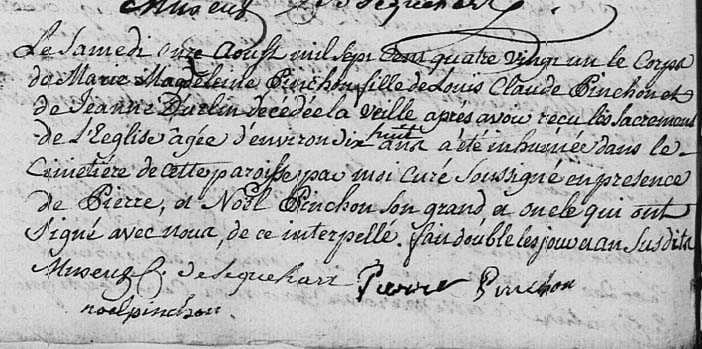 Museux C. de Sequehart
Le Samedi onze Aoust mil sept Cent quatre vingt un le Corps
de Marie Magdeleine Pinchon fille de Louis Claude Pinchon et
de Jeanne Durlin decédée la veille après avoir reçu les Sacremens
de l'Eglise âgée d'environ dix huit ans a été inhumée dans le
Cimetiére de cette paroisse par moi curé Soussigné en presence
de Pierre, et Noël Pinchon Son grand, et oncle qui ont
Signé avec nous, de ce interpellé. fait double les jour et an Susdits
Museux C. de Sequehart Pierre Pinchon
noel pinchon.